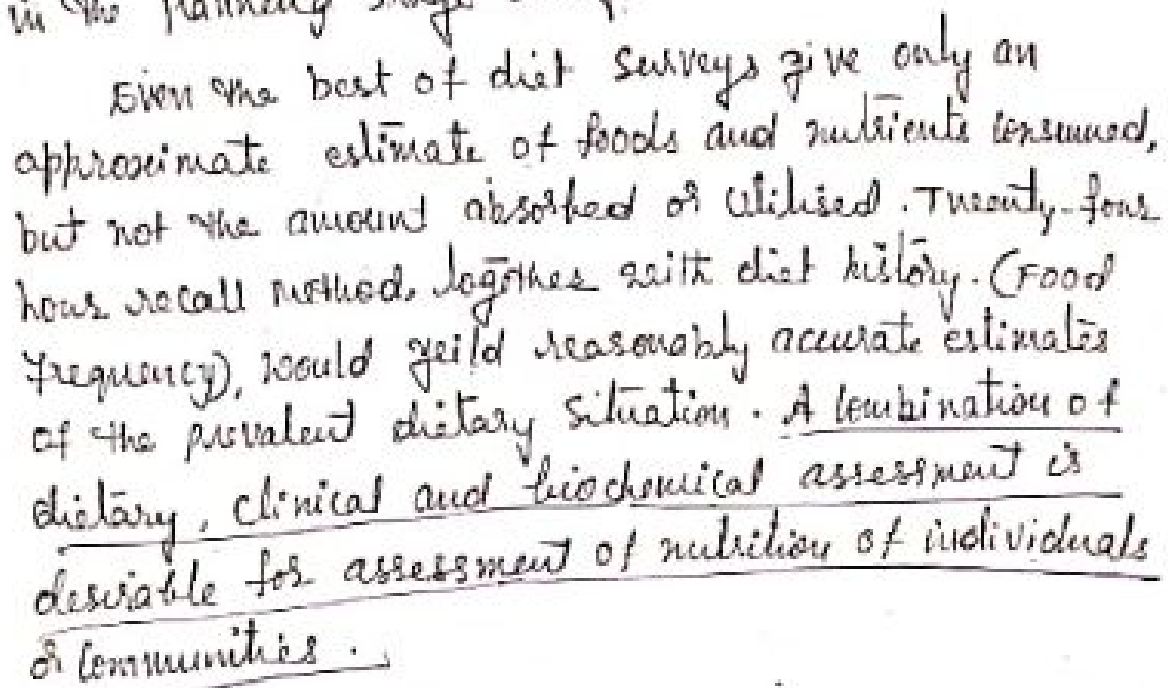 in the planning stage
Even the best of diet surveys give only an
approximate estimate of foods and nutrients consumed,
but not the amount absorbed or utilised. Twenty-four
hour recall method, together with diet history. (Food
frequency), would yeild reasonably accurate estimates
of the prevalent dietary situation. A combination of
dietary, clinical and biochemical assessment is
desirable for assessment of nutrition of individuals
or communities.